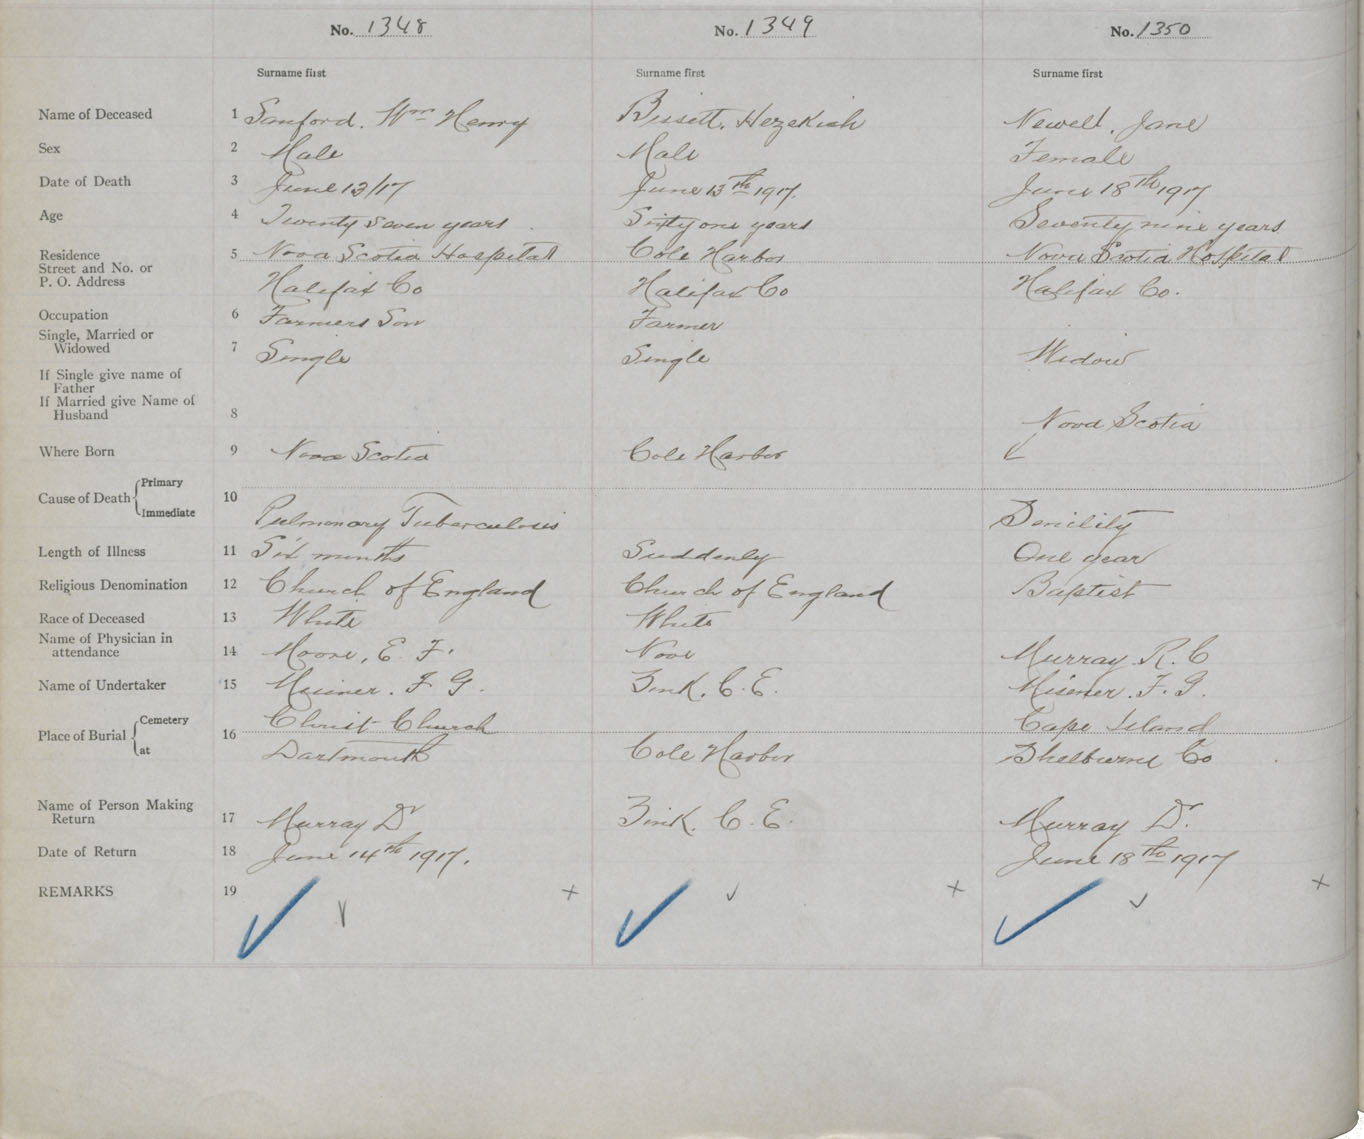 No. 1348 No. 1349 No. 1350
Surname first Surname first Surname first
Name of Deceased 1 Sanford, Wm Henry Bissett, Hezekiah Newell, Jane
Sex 2 Male Male Female
Date of Death 3 June 13/17 June 13th 1917. June 18th 1917
Age 4 Twenty Seven years Sixty one years Seventy nine years
Residence 5 Nova Scotia Hospital Cole Harbor Nova Scotia Hospital
Street and No. or
P. O. Address Halifax Co Halifax Co Halifax Co.
Occupation 6 Farmers Son Farmer
Single, Married or
Widowed 7 Single Single Widow
If Single give name of
Father
If Married give Name of
Husband 8
Nova Scotia
Where Born 9 Nova Scotia Cole Harbor
Cause of Death Primary 10
Immediate Pulmonary Tuberculosis Senility
Length of Illness 11 Six months Suddenly One year
Religious Denomination 12 Church of England Church of England Baptist
Race of Deceased 13 White White
Name of Physician in
attendance 14 Moore, E. F. None Murray. R. C
Name of Undertaker 15 Misiner. F. G. Zink. C. E. Misener. F. G.
Place of Burial Cemetery 16 Christ Church Cape Island
at Dartmouth Cole Harbor Shelburne Co
Name of Person Making
Return 17 Murray Dr Zink. C. E. Murray Dr.
Date of Return 18 June 14th 1917. June 18th 1917
REMARKS 19